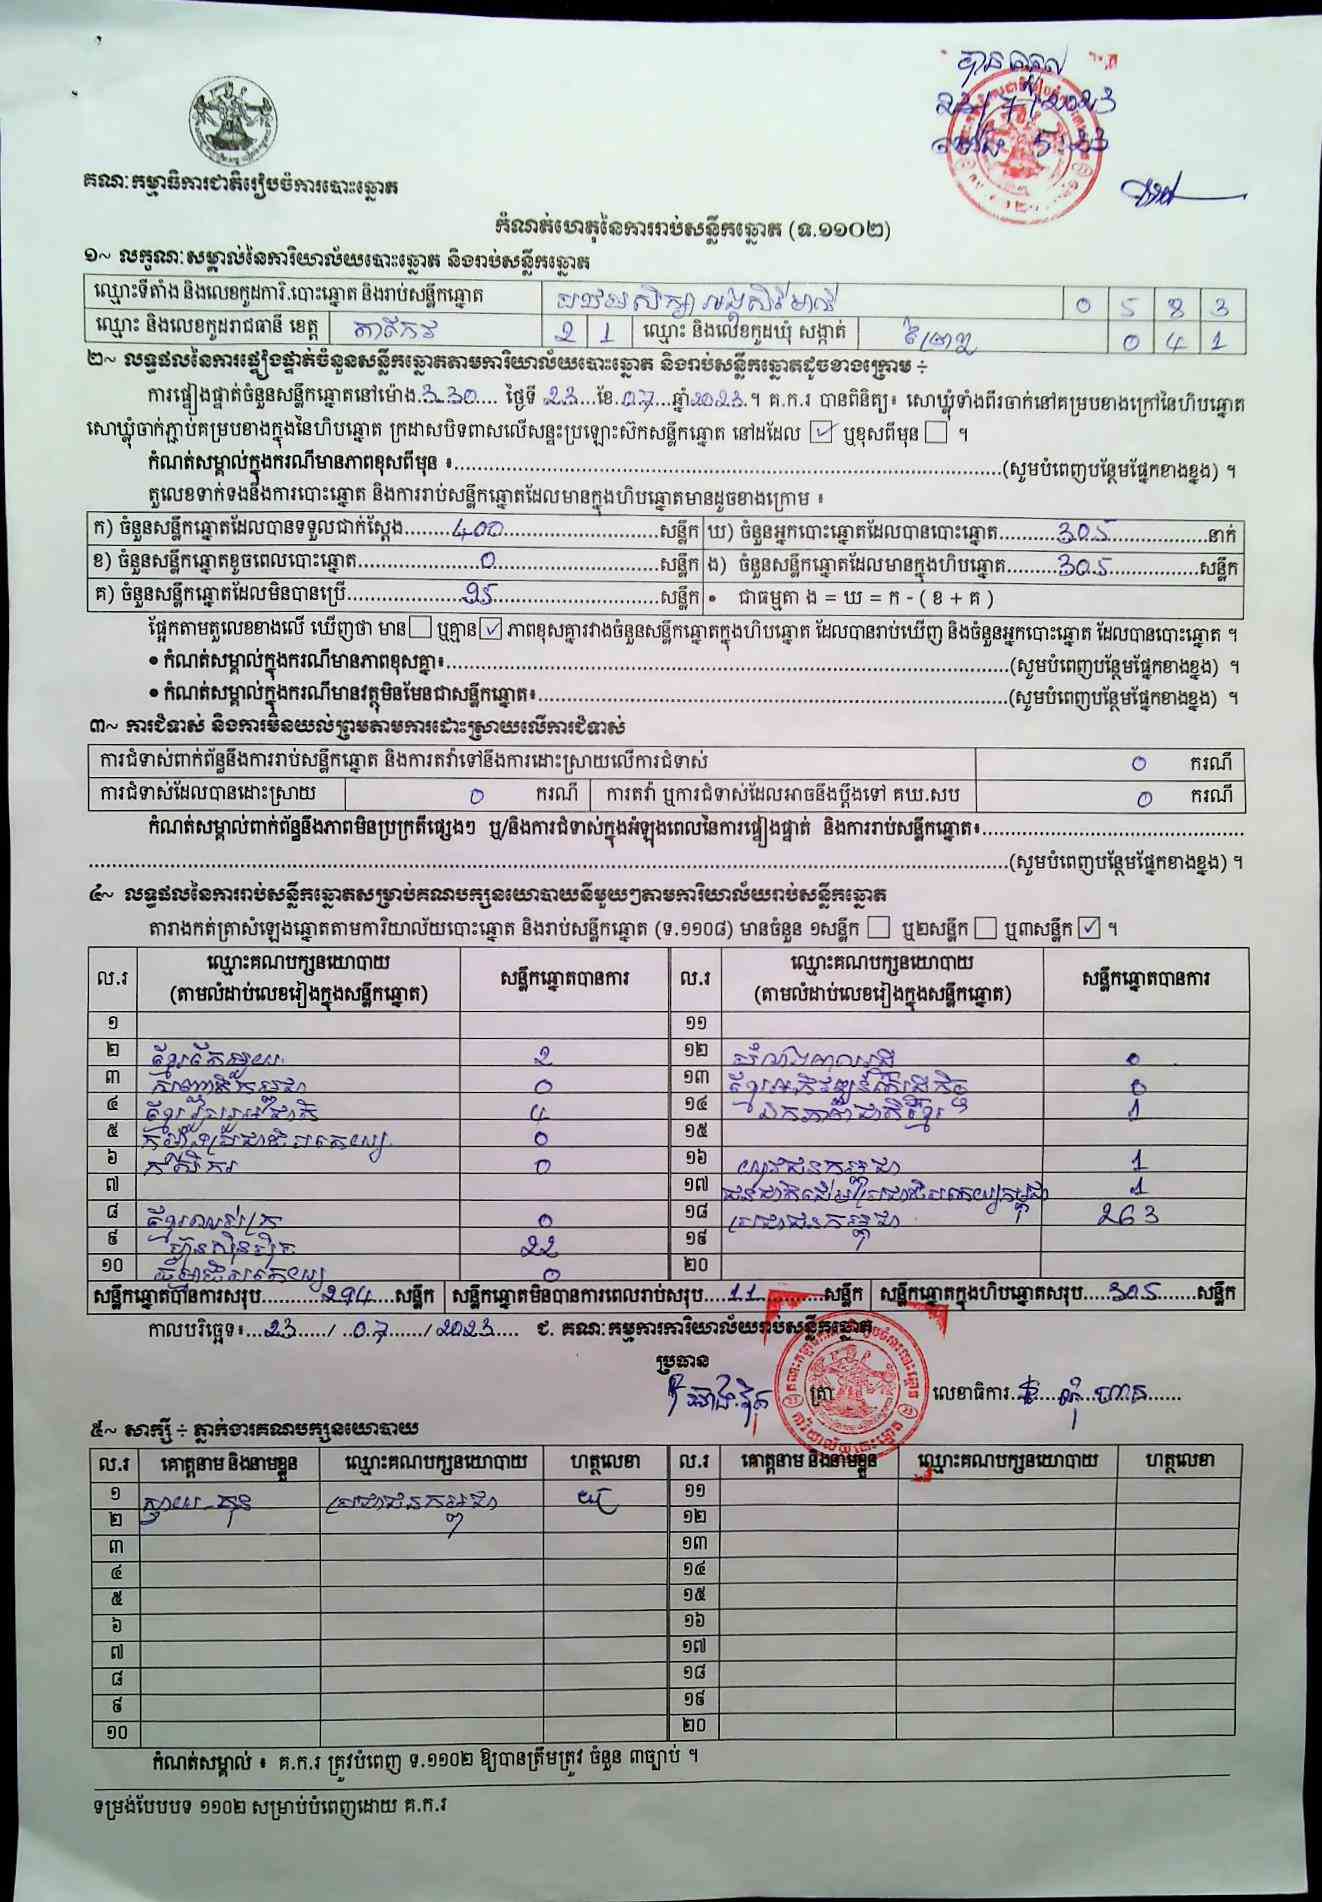 បានឃើញ
23/7/2023
ម៉ោង 5:33
គណៈកម្មាធិការជាតិរៀបចំការបោះឆ្នោត
កំណត់ហេតុនៃការរាប់សន្លឹកឆ្នោត (ទ.១១០២)
១~ លក្ខណៈសម្គាល់នៃការិយាល័យបោះឆ្នោត និងរាប់សន្លឹកឆ្នោត
ឈ្មោះទីតាំង និងលេខកូដការិ.បោះឆ្នោត និងរាប់សន្លឹកឆ្នោត 0 5 8 3
ឈ្មោះ និងលេខកូដរាជធានី ខេត្ត តាកែវ 2 1 ឈ្មោះ និងលេខកូដឃុំ សង្កាត់ 0 4 1
២~ លទ្ធផលនៃការផ្ទៀងផ្ទាត់ចំនួនសន្លឹកឆ្នោតតាមការិយាល័យបោះឆ្នោត និងរាប់សន្លឹកឆ្នោតដូចខាងក្រោម ÷
ការផ្ទៀងផ្ទាត់ចំនួនសន្លឹកឆ្នោតនៅម៉ោង.3.30.... ថ្ងៃទី 23...ខែ.07...ឆ្នាំ2023.។ គ.ក.រ បានពិនិត្យ៖ សោឃ្លុំទាំងពីរចាក់នៅគម្របខាងក្រៅនៃហិបឆ្នោត
សោឃ្លុំចាក់ភ្ជាប់គម្របខាងក្នុងនៃហិបឆ្នោត ក្រដាសបិទពាសលើសន្ទះប្រឡោះស៊កសន្លឹកឆ្នោត នៅដដែល ☑ ឬខុសពីមុន ☐ ។
កំណត់សម្គាល់ក្នុងករណីមានភាពខុសពីមុន ៖......(សូមបំពេញបន្ថែមផ្នែកខាងខ្នង) ។
តួលេខទាក់ទងនឹងការបោះឆ្នោត និងការរាប់សន្លឹកឆ្នោតដែលមានក្នុងហិបឆ្នោតមានដូចខាងក្រោម ៖
ក) ចំនួនសន្លឹកឆ្នោតដែលបានទទួលជាក់ស្តែង........400......សន្លឹក ឃ) ចំនួនអ្នកបោះឆ្នោតដែលបានបោះឆ្នោត..........305......នាក់
ខ) ចំនួនសន្លឹកឆ្នោតខូចពេលបោះឆ្នោត......0......សន្លឹក ង) ចំនួនសន្លឹកឆ្នោតដែលមានក្នុងហិបឆ្នោត.........305......សន្លឹក
គ) ចំនួនសន្លឹកឆ្នោតដែលមិនបានប្រើ......95......សន្លឹក • ជាធម្មតា ង = ឃ = ក - ( ខ + គ )
ផ្អែកតាមតួលេខខាងលើ ឃើញថា មាន ☐ ឬគ្មាន ☑ ភាពខុសគ្នារវាងចំនួនសន្លឹកឆ្នោតក្នុងហិបឆ្នោត ដែលបានរាប់ឃើញ និងចំនួនអ្នកបោះឆ្នោត ដែលបានបោះឆ្នោត ។
• កំណត់សម្គាល់ក្នុងករណីមានភាពខុសគ្នា៖......(សូមបំពេញបន្ថែមផ្នែកខាងខ្នង) ។
• កំណត់សម្គាល់ក្នុងករណីមានវត្ថុមិនមែនជាសន្លឹកឆ្នោត៖......(សូមបំពេញបន្ថែមផ្នែកខាងខ្នង) ។
៣~ ការជំទាស់ និងការមិនយល់ព្រមតាមការដោះស្រាយលើការជំទាស់
ការជំទាស់ពាក់ព័ន្ធនឹងការរាប់សន្លឹកឆ្នោត និងការតវ៉ាទៅនឹងការដោះស្រាយលើការជំទាស់ 0 ករណី
ការជំទាស់ដែលបានដោះស្រាយ 0 ករណី ការតវ៉ា ឬការជំទាស់ដែលអាចនឹងប្តឹងទៅ គឃ.សប 0 ករណី
កំណត់សម្គាល់ពាក់ព័ន្ធនឹងភាពមិនប្រក្រតីផ្សេងៗ ឬ/និងការជំទាស់ក្នុងអំឡុងពេលនៃការផ្ទៀងផ្ទាត់ និងការរាប់សន្លឹកឆ្នោត៖......
......(សូមបំពេញបន្ថែមផ្នែកខាងខ្នង) ។
៤~ លទ្ធផលនៃការរាប់សន្លឹកឆ្នោតសម្រាប់គណបក្សនយោបាយនីមួយៗតាមការិយាល័យរាប់សន្លឹកឆ្នោត
តារាងកត់ត្រាសំឡេងឆ្នោតតាមការិយាល័យបោះឆ្នោត និងរាប់សន្លឹកឆ្នោត (ទ.១១០៨) មានចំនួន ១សន្លឹក ☐ ឬ២សន្លឹក ☐ ឬ៣សន្លឹក ☑ ។
ល.រ ឈ្មោះគណបក្សនយោបាយ (តាមលំដាប់លេខរៀងក្នុងសន្លឹកឆ្នោត) សន្លឹកឆ្នោតបានការ ល.រ ឈ្មោះគណបក្សនយោបាយ (តាមលំដាប់លេខរៀងក្នុងសន្លឹកឆ្នោត) សន្លឹកឆ្នោតបានការ
១ ១១
២ ខ្មែរតែមួយ 2 ១២ 0
៣ កម្ពុជានិយម 0 ១៣ ខ្មែរអភិវឌ្ឍន៍សេដ្ឋកិច្ច 0
៤ ខ្មែររួបរួមជាតិ 4 ១៤ ឯកភាពជាតិខ្មែរ 1
៥ កម្លាំងប្រជាធិបតេយ្យ 0 ១៥
៦ កសិករ 0 ១៦ យុវជនកម្ពុជា 1
៧ ១៧ ជនជាតិដើមប្រជាធិបតេយ្យកម្ពុជា 1
៨ ខ្មែរឈប់ក្រ 0 ១៨ ប្រជាជនកម្ពុជា 263
៩ ហ៊្វុនស៊ិនប៉ិច 22 ១៩
១០ ធម្មាធិបតេយ្យ 0 ២០
សន្លឹកឆ្នោតបានការសរុប..........294....សន្លឹក សន្លឹកឆ្នោតមិនបានការពេលរាប់សរុប....11......សន្លឹក សន្លឹកឆ្នោតក្នុងហិបឆ្នោតសរុប....305.......សន្លឹក
កាលបរិច្ឆេទ៖...23...../..07....../2023.... ជ. គណៈកម្មការការិយាល័យរាប់សន្លឹកឆ្នោត
ប្រធាន
ត្រា លេខាធិការ
៥~ សាក្សី ÷ ភ្នាក់ងារគណបក្សនយោបាយ
ល.រ គោត្តនាម និងនាមខ្លួន ឈ្មោះគណបក្សនយោបាយ ហត្ថលេខា ល.រ គោត្តនាម និងនាមខ្លួន ឈ្មោះគណបក្សនយោបាយ ហត្ថលេខា
១ ប្រជាជនកម្ពុជា ១១
២ ១២
៣ ១៣
៤ ១៤
៥ ១៥
៦ ១៦
៧ ១៧
៨ ១៨
៩ ១៩
១០ ២០
កំណត់សម្គាល់ ៖ គ.ក.រ ត្រូវបំពេញ ទ.១១០២ ឱ្យបានត្រឹមត្រូវ ចំនួន ៣ច្បាប់ ។
ទម្រង់បែបបទ ១១០២ សម្រាប់បំពេញដោយ គ.ក.រ